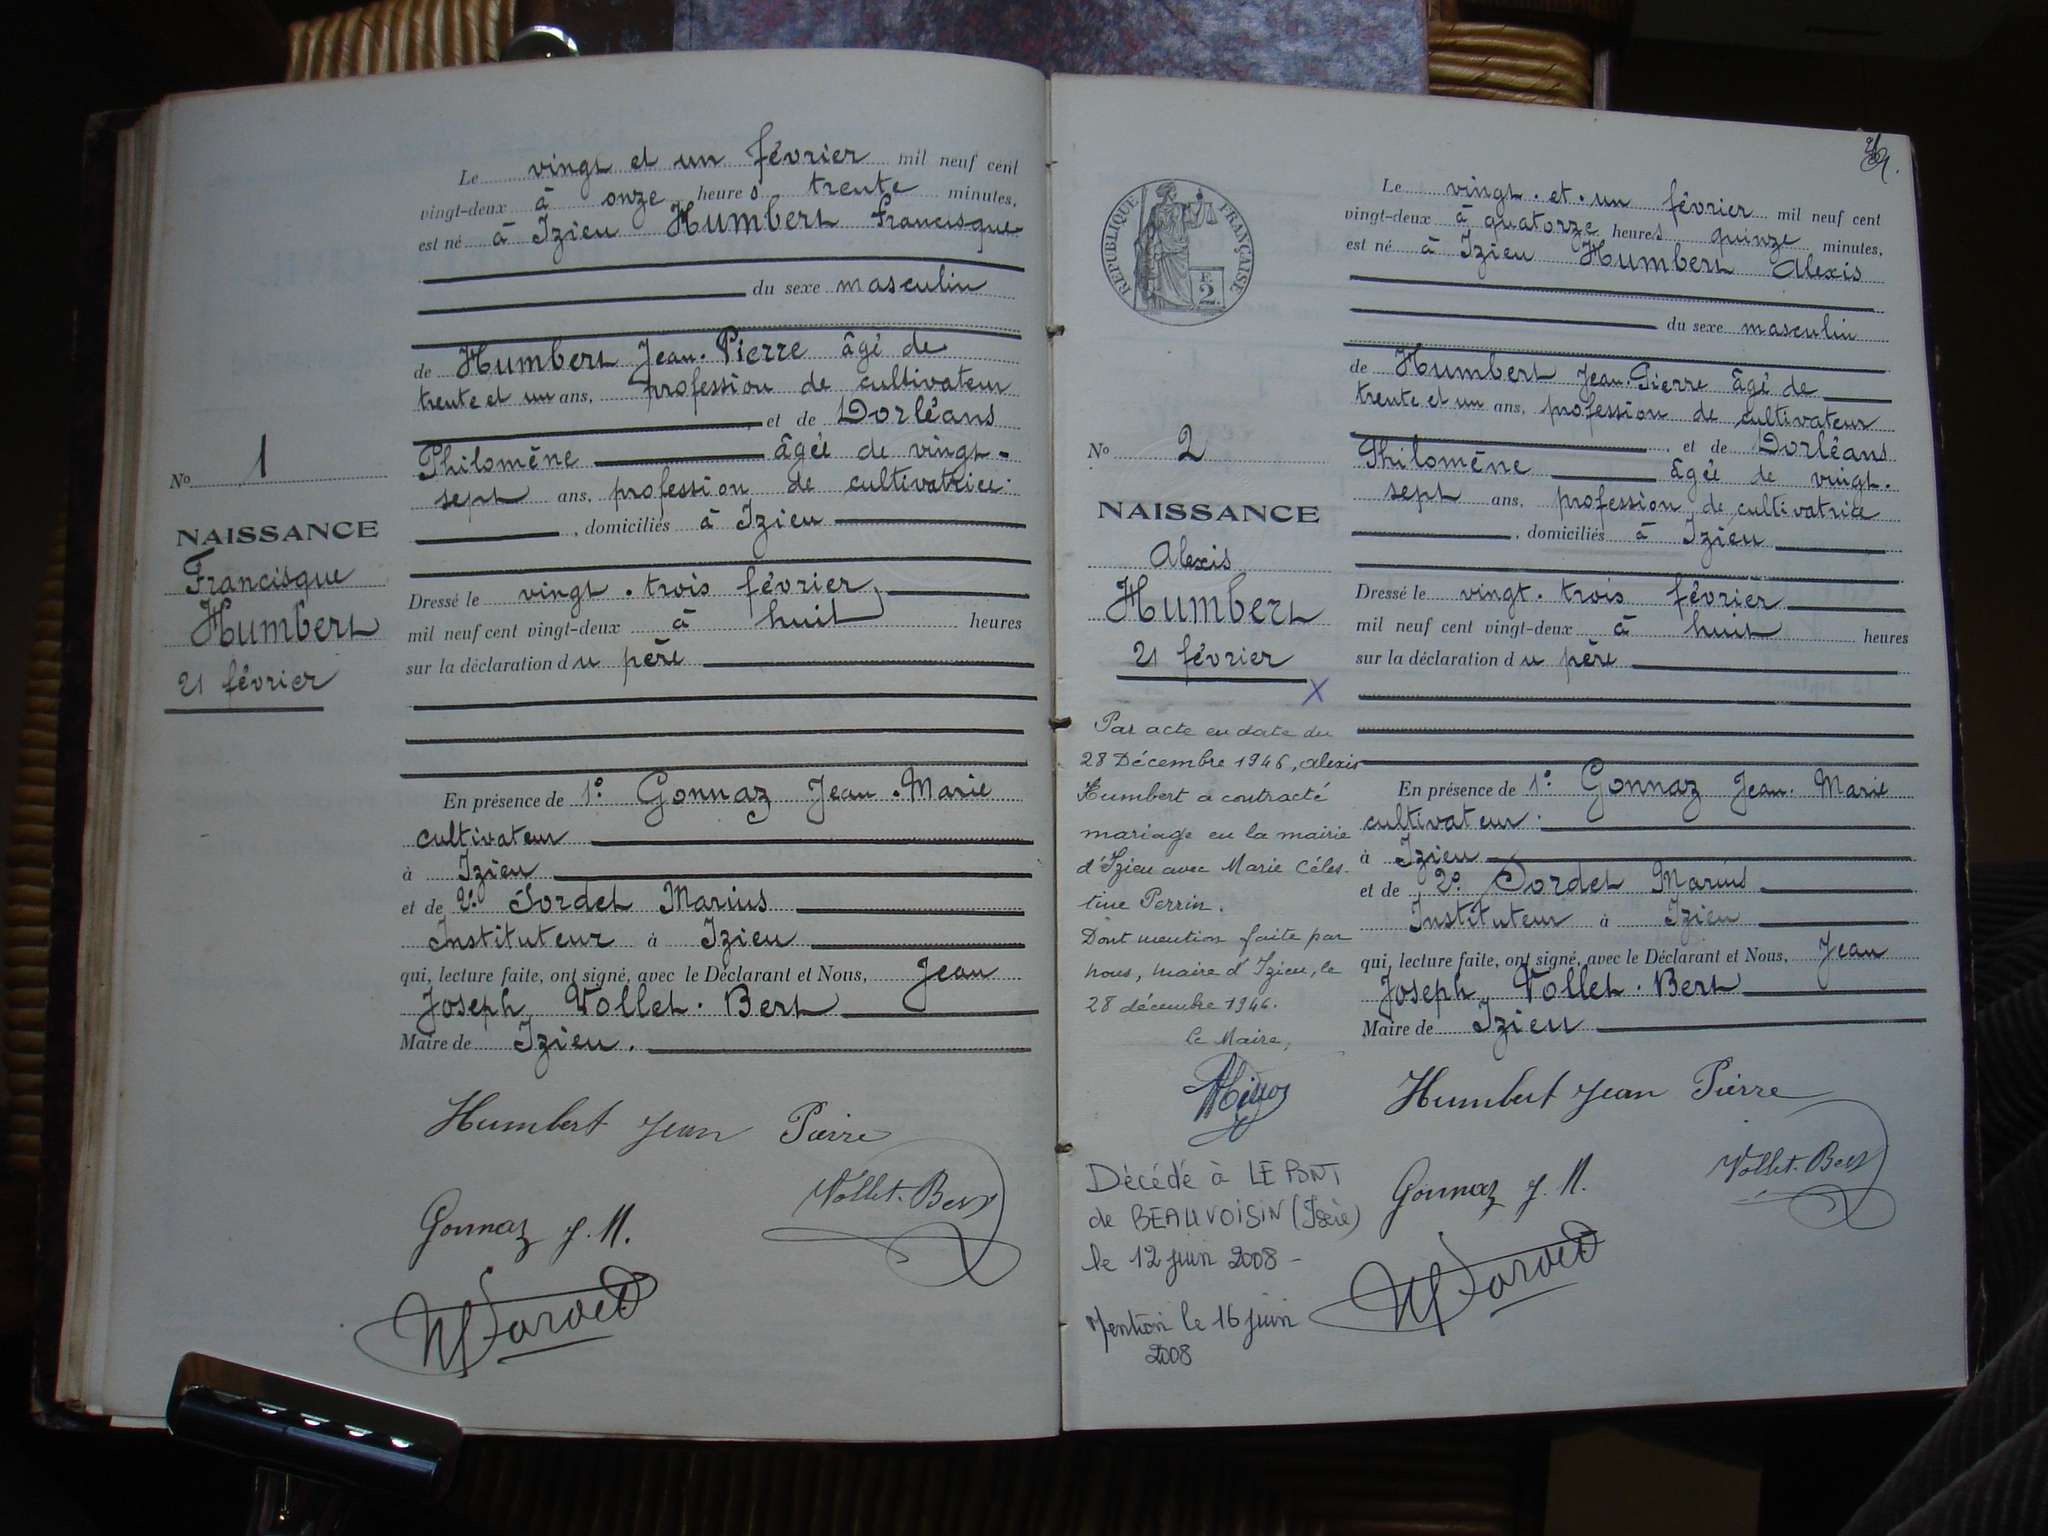 Le vingt et un février mil neuf cent
vingt-deux à onze heures trente minutes,
est né à Izieu Humbert Francisque
du sexe masculin
de Humbert Jean-Pierre âgé de
trente et un ans, profession de cultivateur
, et de Dorléans
Philomène âgée de vingt-
sept ans, profession de cultivatrice
, domiciliés à Izieu
Dressé le vingt-trois février,
mil neuf cent vingt-deux à huit heures
sur la déclaration du père
En présence de 1º Gonnaz Jean-Marie
cultivateur
à Izieu
et de 2º Dordet Marius
Instituteur à Izieu
qui, lecture faite, ont signé, avec le Déclarant et Nous, Jean
Joseph Vollet-Bert
Maire de Izieu.
Humbert Jean Pierre
Vollet-Bert
Gonnaz J. M.
No 1
NAISSANCE
Francisque
Humbert
21 février
RÉPUBLIQUE FRANÇAISE
2
No 2
NAISSANCE
Alexis
Humbert
21 février
X
Par acte en date du
28 Décembre 1946, Alexis
Humbert a contracté
mariage en la mairie
d'Izieu avec Marie Céles-
tine Perrin.
Dont mention faite par
nous, maire d'Izieu, le
28 décembre 1946.
le Maire,
Décédé à LE PONT
de BEAUVOISIN (Isère)
le 12 juin 2008 -
Mention le 16 juin
2008
Le vingt-et-un février mil neuf cent
vingt-deux à quatorze heures quinze minutes,
est né à Izieu Humbert Alexis
du sexe masculin
de Humbert Jean-Pierre âgé de
trente et un ans, profession de cultivateur
, et de Dorléans
Philomène âgée de vingt-
sept ans, profession de cultivatrice
, domiciliés à Izieu
Dressé le vingt-trois février
mil neuf cent vingt-deux à huit heures
sur la déclaration du père
En présence de 1º Gonnaz Jean-Marie
cultivateur.
à Izieu
et de 2º Dordet Marius
Instituteur à Izieu
qui, lecture faite, ont signé, avec le Déclarant et Nous, Jean
Joseph Vollet-Bert
Maire de Izieu
Humbert Jean Pierre
Vollet-Bert
Gonnaz J. M.